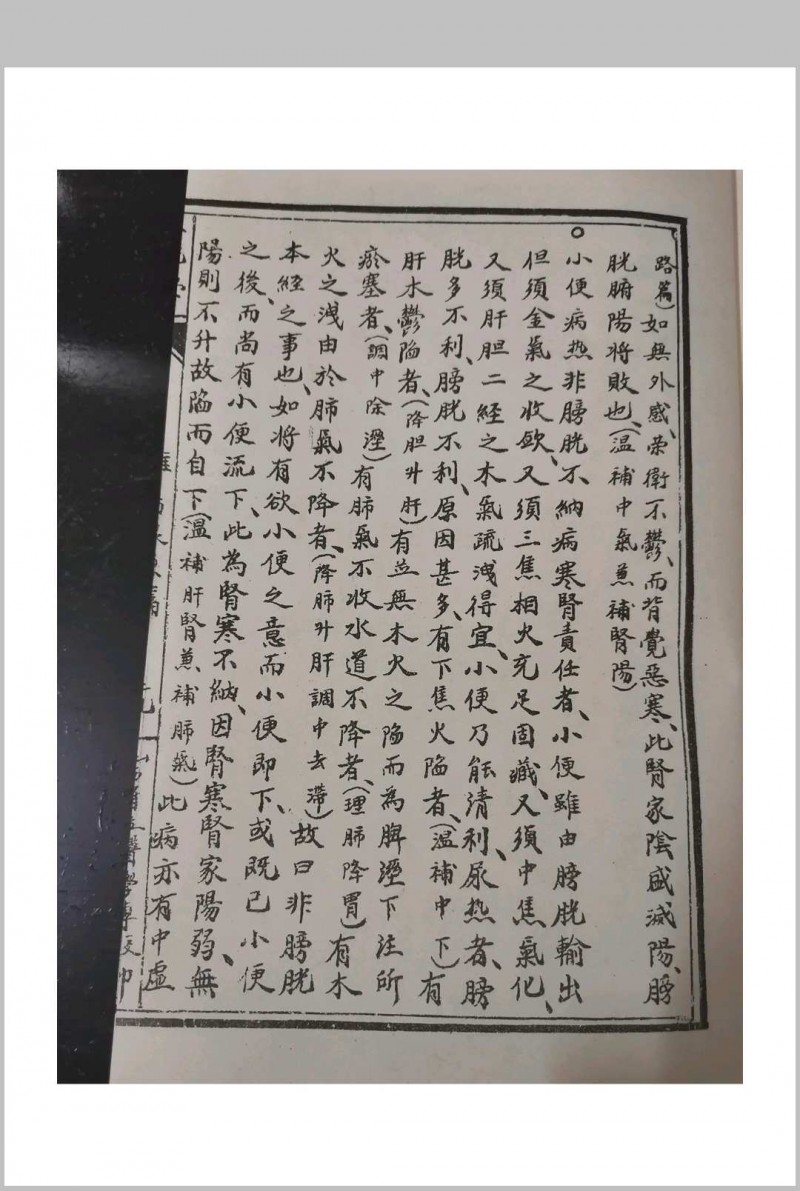 路篇）如無外感、荣衛不鬱、而背覺惡寒、此腎家陰盛減陽、膀
胱腑陽將敗也、（溫補中氣兼補腎陽）
小便病热非膀胱不納病寒腎責任者、小便雖由膀胱輸出
但須金氣之收歛、又須三焦相火充足固藏、又須中焦氣化、
又須肝胆二經之木氣疏洩得宜、小便乃能清利、尿热者、膀
胱多不利、膀胱不利、原因甚多、有下焦火陷者、（溫補中下）有
肝木鬱陷者、（降胆升肝）有並無木火之陷而為脾溼下注所
瘀塞者、（調中除溼）有肺氣不收水道不降者、（理肺降胃）有木
火之洩由於肺氣不降者、（降肺升肝調中去滯）故曰非膀胱
本經之事也、如將有欲小便之意而小便即下、或既已小便
之後、而尚有小便流下、此為腎寒不納、因腎寒腎家陽弱、無
陽則不升故陷而自下（溫補肝腎兼補肺氣）此病亦有中虛
醫學專校印